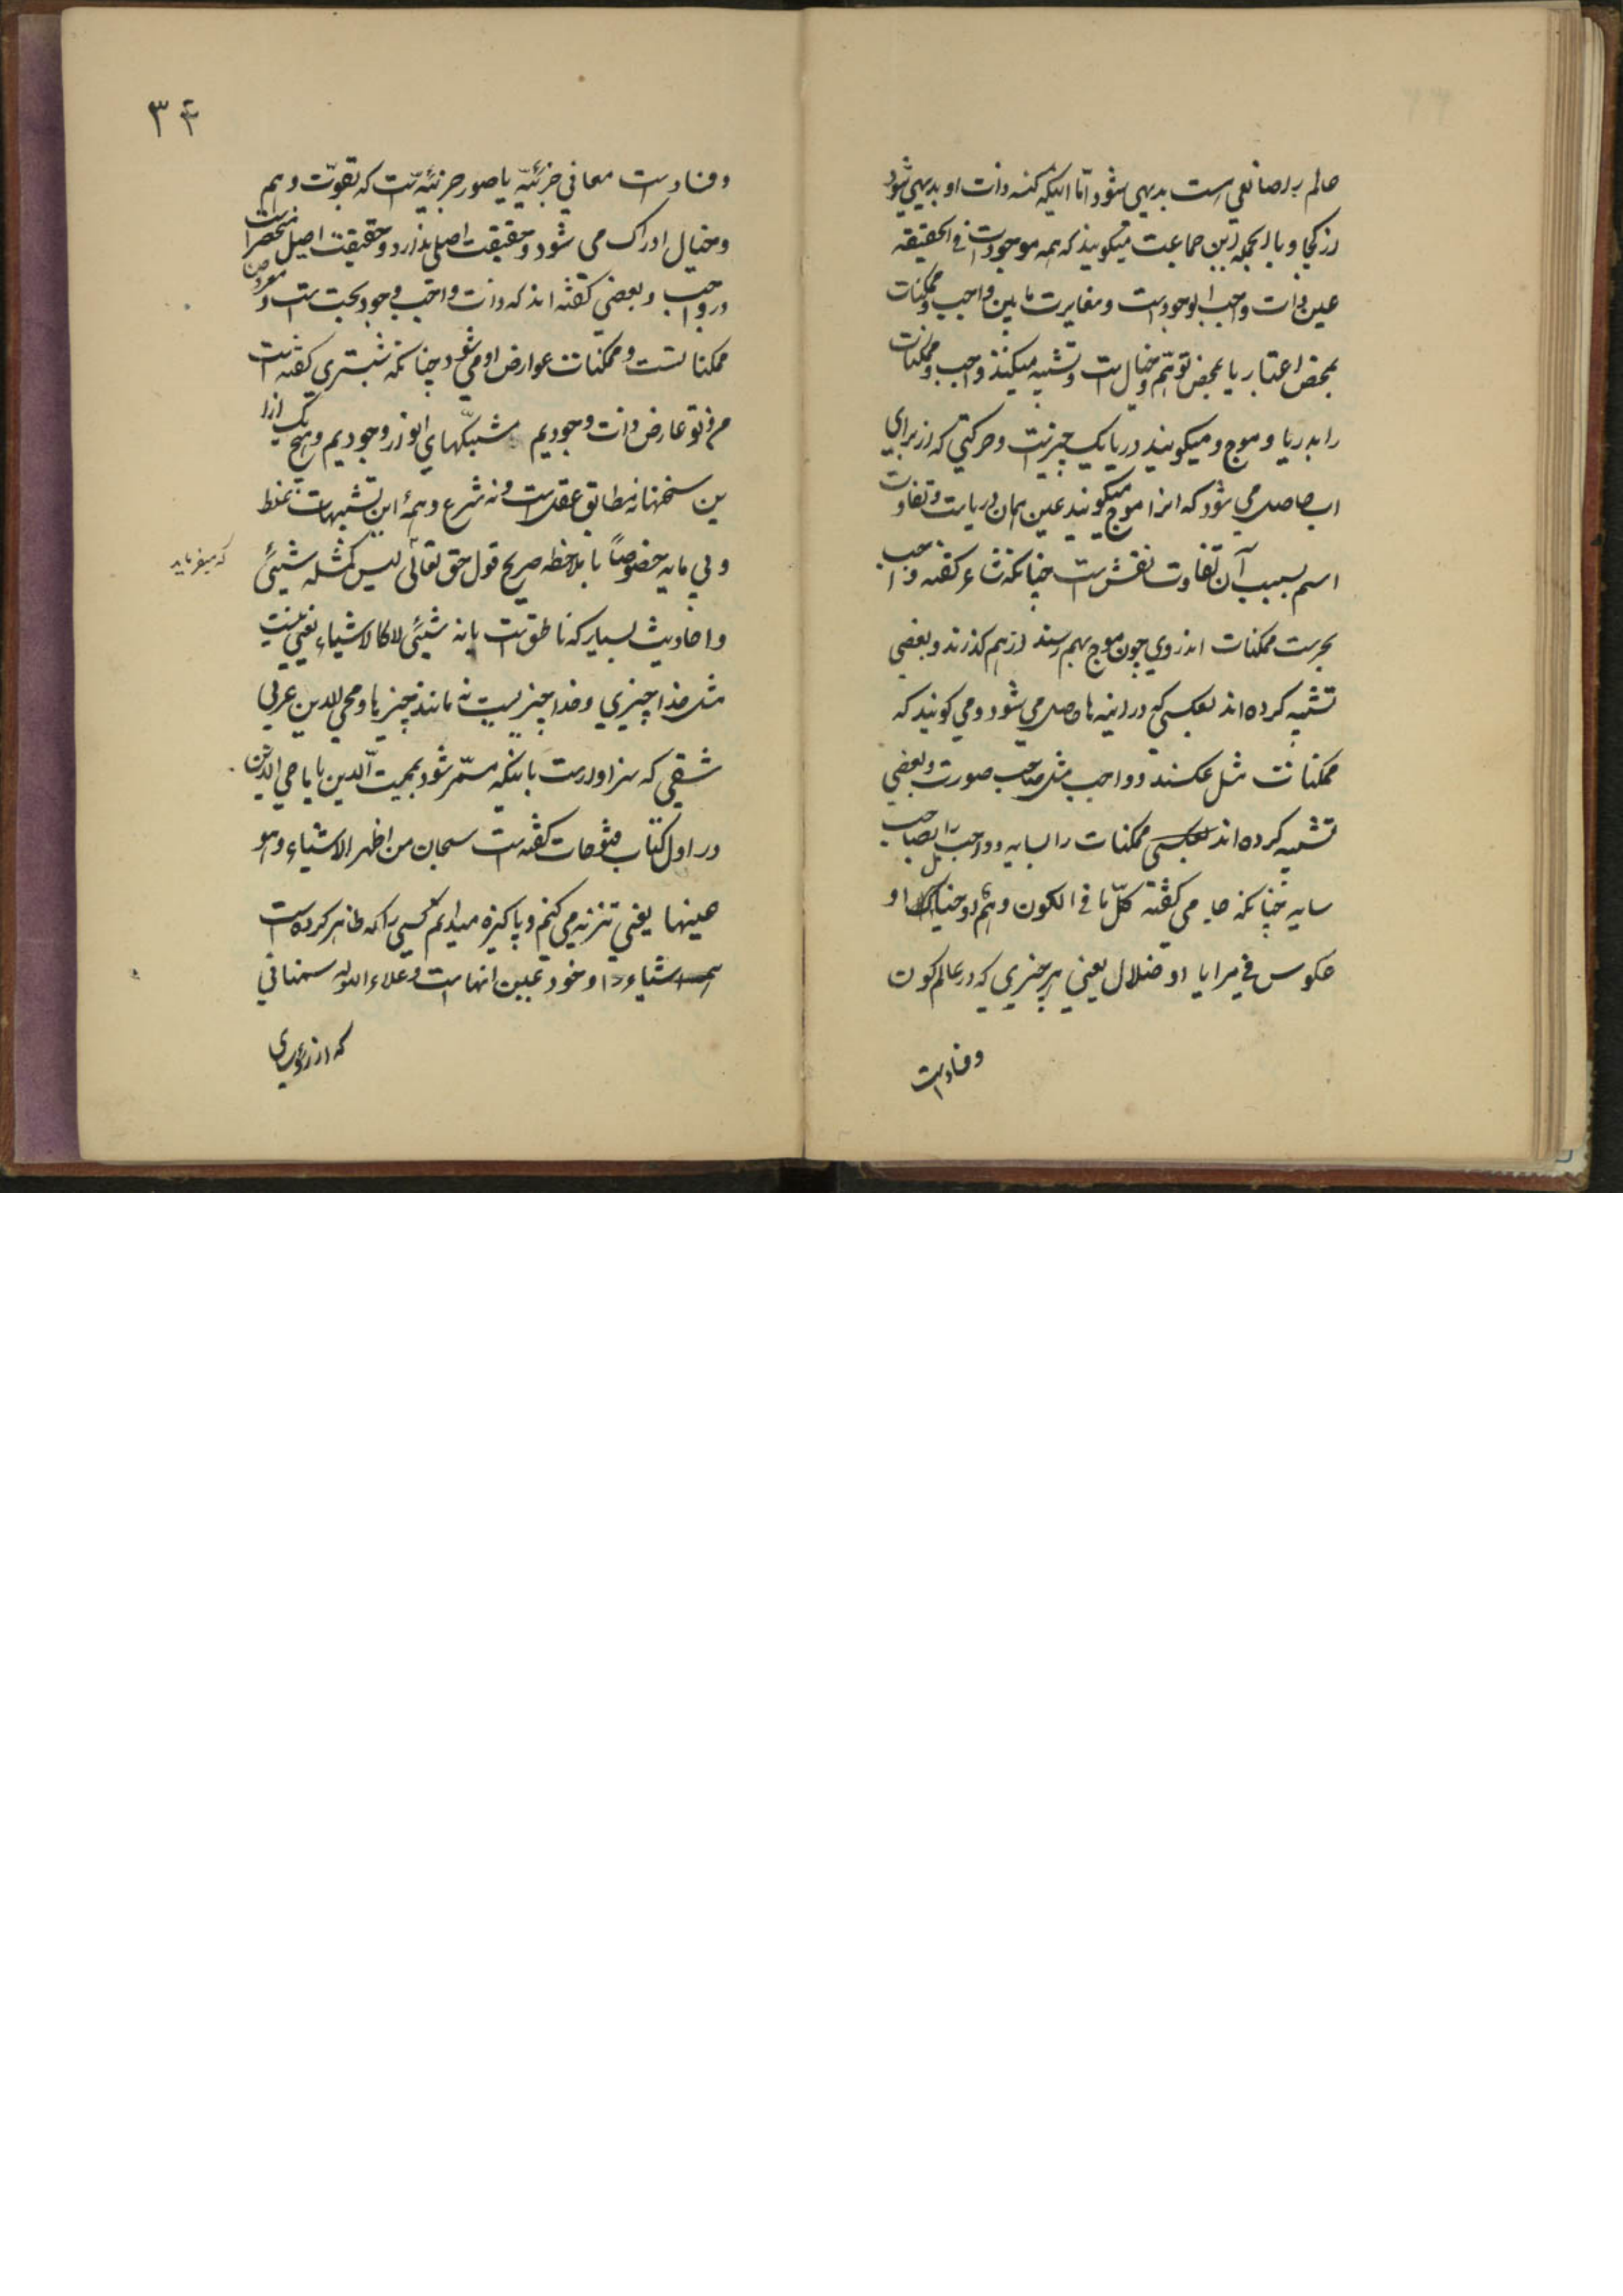 عالم را صانعی است بدیهی شود اما اینکه کنه ذات او بدیهی شود
از کجا و بالجمله این جماعت میگویند که همه موجودات فی الحقیقه
عین ذات واجب الوجود است و مغایرت مابین واجب و ممکنات
بمحض اعتبار یا بمحض توهّم و خیال است و تشبیه میکنند واجب و ممکنات
را بدریا و موج و میگویند دریا یک چیزیست و حرکتی که از برای
اب حاصل می شود که انرا موج میگویند عین همان دریاست و تفاوت
اسم بسبب آن تفاوت نقش است چنانکه شاعر گفته واجب
بحریست ممکنات اندروی چون موج بهم رسند از هم گذرند و بعضی
تشبیه کرده اند بعکسی که در اینه ها حاصل می شود و می گویند که
ممکنات مثل عکسند و واجب مثل صاحب صورت و بعضی
تشبیه کرده اند ممکنات را بسایه و واجب را بصاحب
سایه چنانکه جامی گفته کلّ ما فی الکون وهم او خیال او
عکوس فی مرایا او ضلال یعنی هر چیزی که در عالم کون
و فساد است
۳۴
و فساد است معانی جزئیّه یا صور جزئیّه است که بقوّت وهم
و خیال ادراک می شود و حقیقت اصلی ندارد و حقیقت اصیل منحصر است
در واجب و بعضی گفته اند که ذات واجب وجود بحت است و معروض
ممکناتست و ممکنات عوارض او می شود چنانکه شبستری گفته است
من و تو عارض ذات وجودیم مشبکهای وجودیم و هیچ یک از ا
ین سخنها نه مطابق عقل است و نه شرع و همهٔ این تشبیهات غلط
و بی مایه خصوصاً با ملاحظه صریح قول حق تعالی لیس کمثله شیئی
که میفرماید
و احادیث بسیار که ناطق است بانه شیئی لا کالاشیاء یعنی نیست
مثل خدا چیزی و خدا چیزیست نه مانند چیزها و محی الدین عربی
شقی که سزاوار است باینکه مسمّی شود بممیت الدین یا ماحی الدین
در اول کتاب فتوحات گفته است سبحان من اظهر الاشیاء و هو
عینها یعنی تنزیه می کنم و پاکیزه میدانم کسی را که ظاهر کرده است
اشیاء را و خود عین انهاست و علاء الدوله سمنانی
که از رؤسای